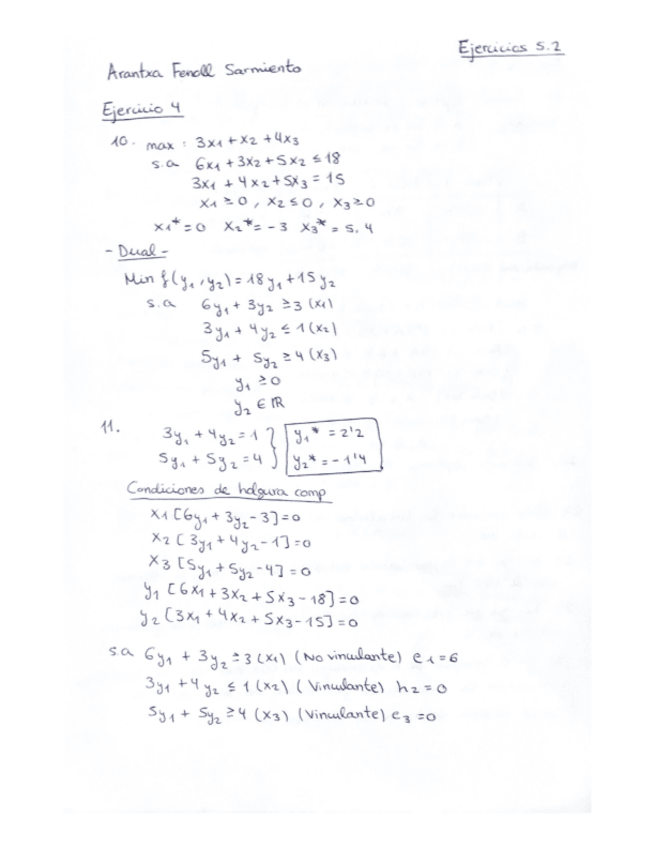 Ejercicios 5.2
Arantxa Fenoll Sarmiento
Ejercicio 4
10. max: 3x1 + x2 + 4x3
s.a 6x1 + 3x2 + 5x2 ≤ 18
3x1 + 4x2 + 5x3 = 15
x1 ≥ 0, x2 ≤ 0, x3 ≥ 0
x1* = 0 x2* = -3 x3* = 5,4
- Dual -
Min f(y1, y2) = 18y1 + 15y2
s.a 6y1 + 3y2 ≥ 3 (x1)
3y1 + 4y2 ≤ 1 (x2)
5y1 + 5y2 ≥ 4 (x3)
y1 ≥ 0
y2 ∈ ℝ
11. 3y1 + 4y2 = 1 } y1* = 2'2
5y1 + 5y2 = 4 } y2* = -1'4
Condiciones de holgura comp
x1 [6y1 + 3y2 - 3] = 0
x2 [3y1 + 4y2 - 1] = 0
x3 [5y1 + 5y2 - 4] = 0
y1 [6x1 + 3x2 + 5x3 - 18] = 0
y2 [3x1 + 4x2 + 5x3 - 15] = 0
s.a 6y1 + 3y2 ≥ 3 (x1) (No vinculante) e1 = 6
3y1 + 4y2 ≤ 1 (x2) (Vinculante) h2 = 0
5y1 + 5y2 ≥ 4 (x3) (Vinculante) e3 = 0